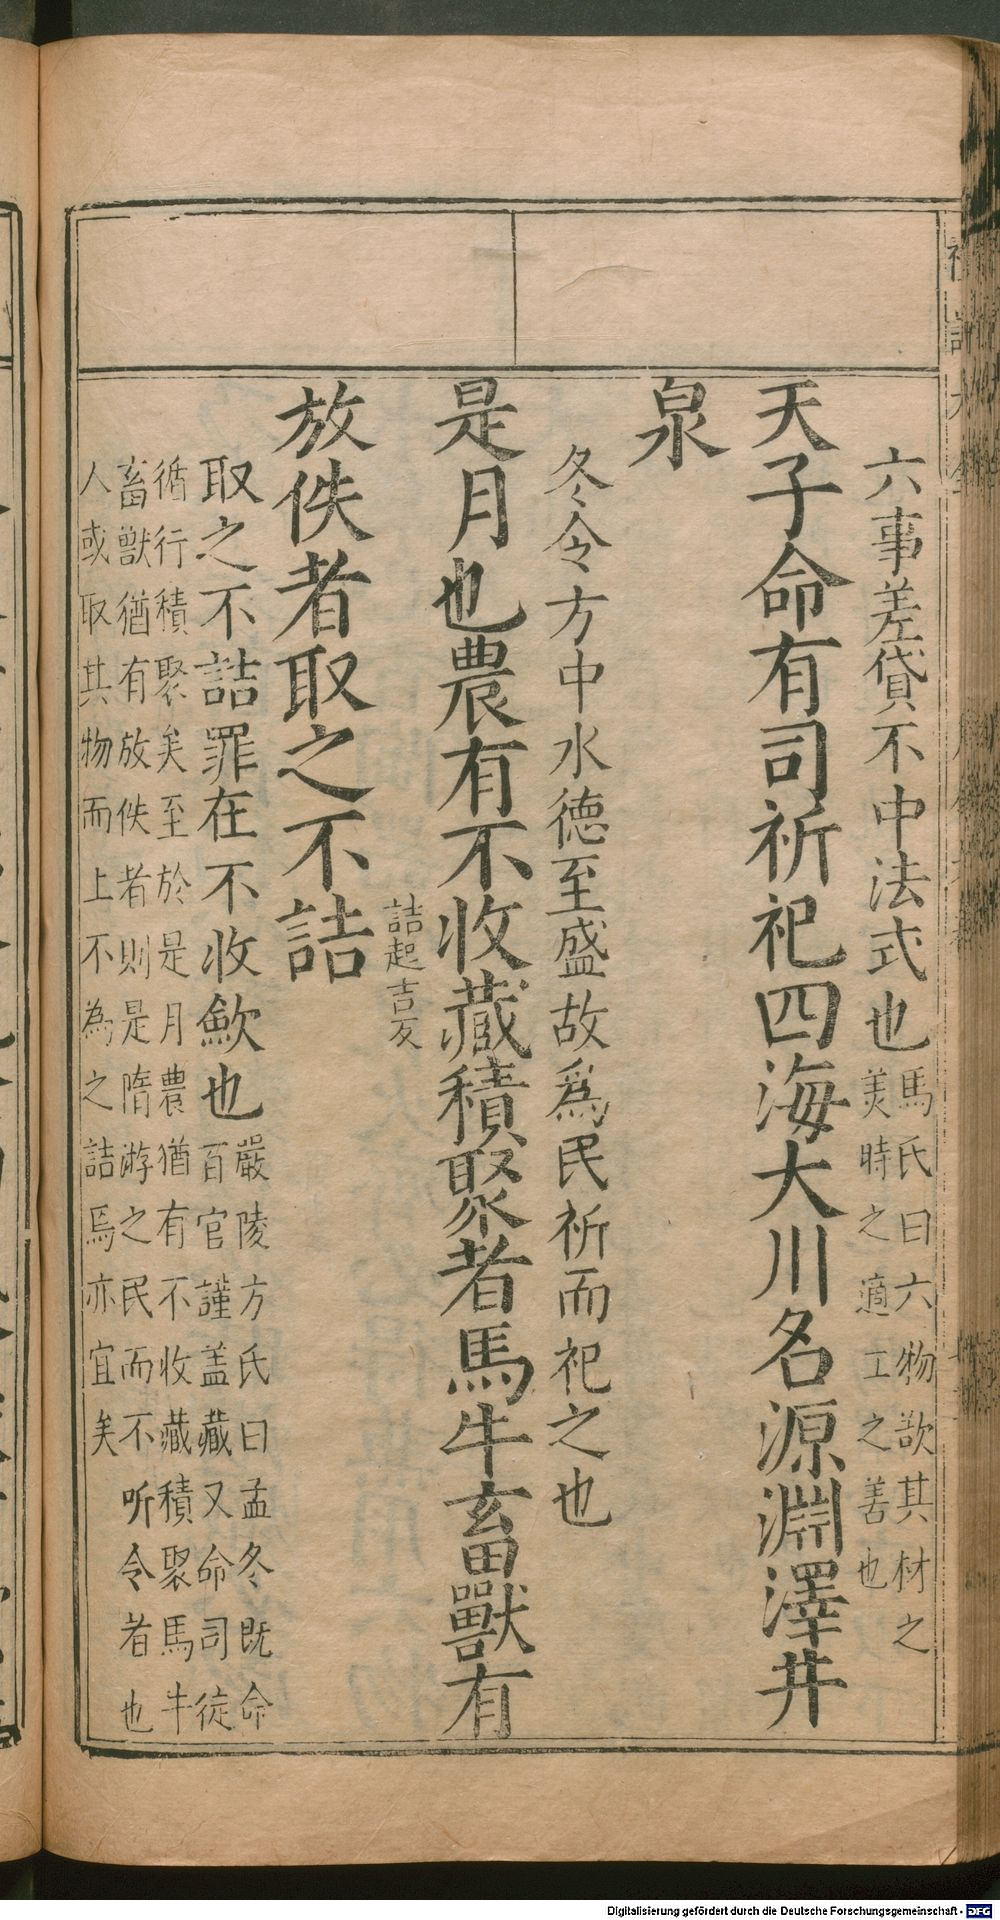 六事差貸不中法式也馬氏曰六物欲其材之
美時之適工之善也
天子命有司祈祀四海大川名源淵澤井
泉
冬令方中水德至盛故爲民祈而祀之也
是月也農有不收藏積聚者馬牛畜獸有
放佚者取之不詰
詰起吉反
取之不詰罪在不收歛也
嚴陵方氏曰孟冬既命
百官謹盖藏又命司徒
循行積聚矣至於是月農猶有不收藏積聚馬牛
畜獸猶有放佚者則是隋游之民而不听令者也
人或取其物而上不為之詰焉亦宜矣
Digitalisierung gefördert durch die Deutsche Forschungsgemeinschaft - DFG